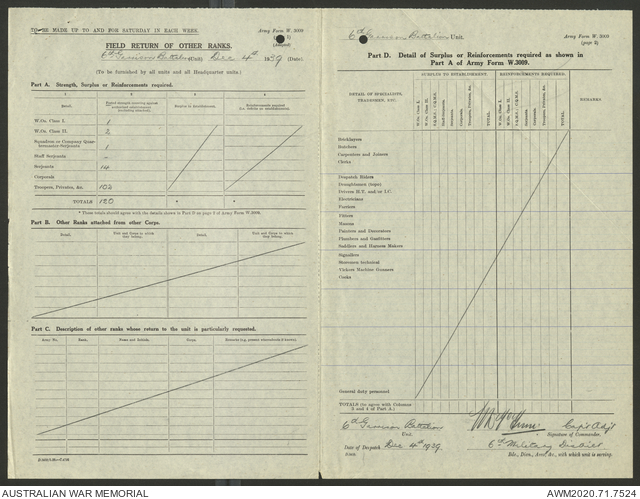 TO BE MADE UP TO AND FOR SATURDAY IN EACH WEEK.
Army Form W. 3009
(Adapted)
FIELD RETURN OF OTHER RANKS.
6th Garrison Battalion (Unit) Dec 4th 1939 (Date)
(To be furnished by all units and all Headquarter units.)
Part A. Strength, Surplus or Reinforcements required.
Detail.
W.Os. Class I. 1
W.Os. Class II. 2
Squadron or Company Quartermaster-Serjeants 1
Staff Serjeants —
Serjeants 14
Corporals
Troopers, Privates, &c. 102
TOTALS 120 * *
* These totals should agree with the details shown in Part D on page 2 of Army Form W.3009.
Part B. Other Ranks attached from other Corps.
Detail. Unit and Corps to which they belong. Detail. Unit and Corps to which they belong.
Part C. Description of other ranks whose return to the unit is particularly requested.
Army No. Rank. Name and Initials. Corps.
6th Garrison Battalion Unit.
Army Form W. 3009
(page 2)
Part D. Detail of Surplus or Reinforcements required as shown in
Part A of Army Form W.3009.
DETAIL OF SPECIALISTS, TRADESMEN, ETC.
SURPLUS TO ESTABLISHMENT. REINFORCEMENTS REQUIRED.
REMARKS
W.Os. Class I.
W.Os. Class II.
Serjeants.
Corporals.
Troopers, Privates, &c.
TOTAL.
W.Os. Class I.
W.Os. Class II.
Serjeants.
Corporals.
Troopers, Privates, &c.
TOTAL.
Bricklayers
Butchers
Carpenters and Joiners
Clerks
Dispatch Riders
Draughtsmen (topo)
Drivers H.T. and/or I.C.
Electricians
Farriers
Fitters
Masons
Painters and Decorators
Plumbers and Gasfitters
Saddlers and Harness Makers
Signallers
Storemen technical
Vickers Machine Gunners
Cooks
General duty personnel
TOTALS (to agree with Columns
3 and 4 of Part A.)
6th Garrison Battalion
Unit.
Capt Adjt
Signature of Commander.
Date of Despatch Dec 4th 1939.
6th Military District
Bde., Divn., Area, &c., with which unit is serving.
AUSTRALIAN WAR MEMORIAL
AWM2020.71.7524